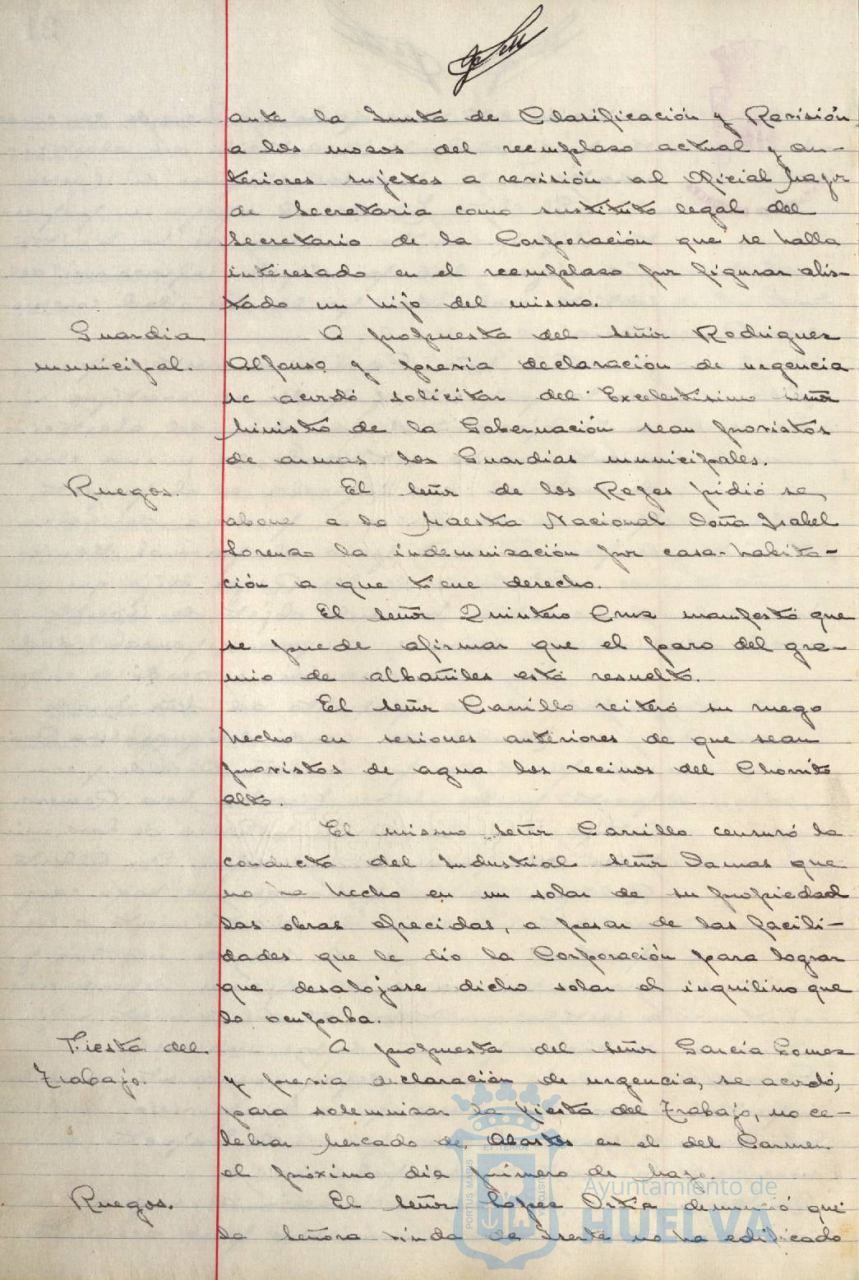 ante la Junta de Clasificación y Revisión
a los mozos del reemplazo actual y an-
teriores sujetos a revisión al Oficial Mayor
de Secretaría como sustituto legal del
Secretario de la Corporación que se halla
interesado en el reemplazo por figurar alis-
tado un hijo del mismo.
Guardia
municipal.
A propuesta del señor Rodríguez
Alfonso y previa declaración de urgencia
se acordó solicitar del Excelentísimo señor
Ministro de la Gobernación sean provistos
de armas los Guardias municipales.
Ruegos.
El señor de los Reyes pidió se
abone a la Maestra Nacional Doña Isabel
Lorenzo la indemnización por casa-habita-
ción a que tiene derecho.
El señor Quintero Cruz manifestó que
se puede afirmar que el paro del gre-
mio de albañiles está resuelto.
El señor Carrillo reiteró su ruego
hecho en sesiones anteriores de que sean
provistos de agua los vecinos del Chorrito
alto.
El mismo señor Carrillo censuró la
conducta del Industrial señor Damas que
no ha hecho en un solar de su propiedad
las obras ofrecidas, a pesar de las facili-
dades que le dio la Corporación para lograr
que desalojase dicho solar el inquilino que
lo ocupaba.
Fiesta del
Trabajo.
A propuesta del señor García Gomez
y previa declaración de urgencia, se acordó,
para solemnizar la fiesta del Trabajo, no ce-
lebrar mercado de Abastos en el del Carmen
el próximo día primero de Mayo.
Ruegos.
El señor López Ortiz denunció que
la señora viuda de no ha edificado
Ayuntamiento de
HUELVA
PORTUS MARIS
ET TERRÆ
CUSTODIA